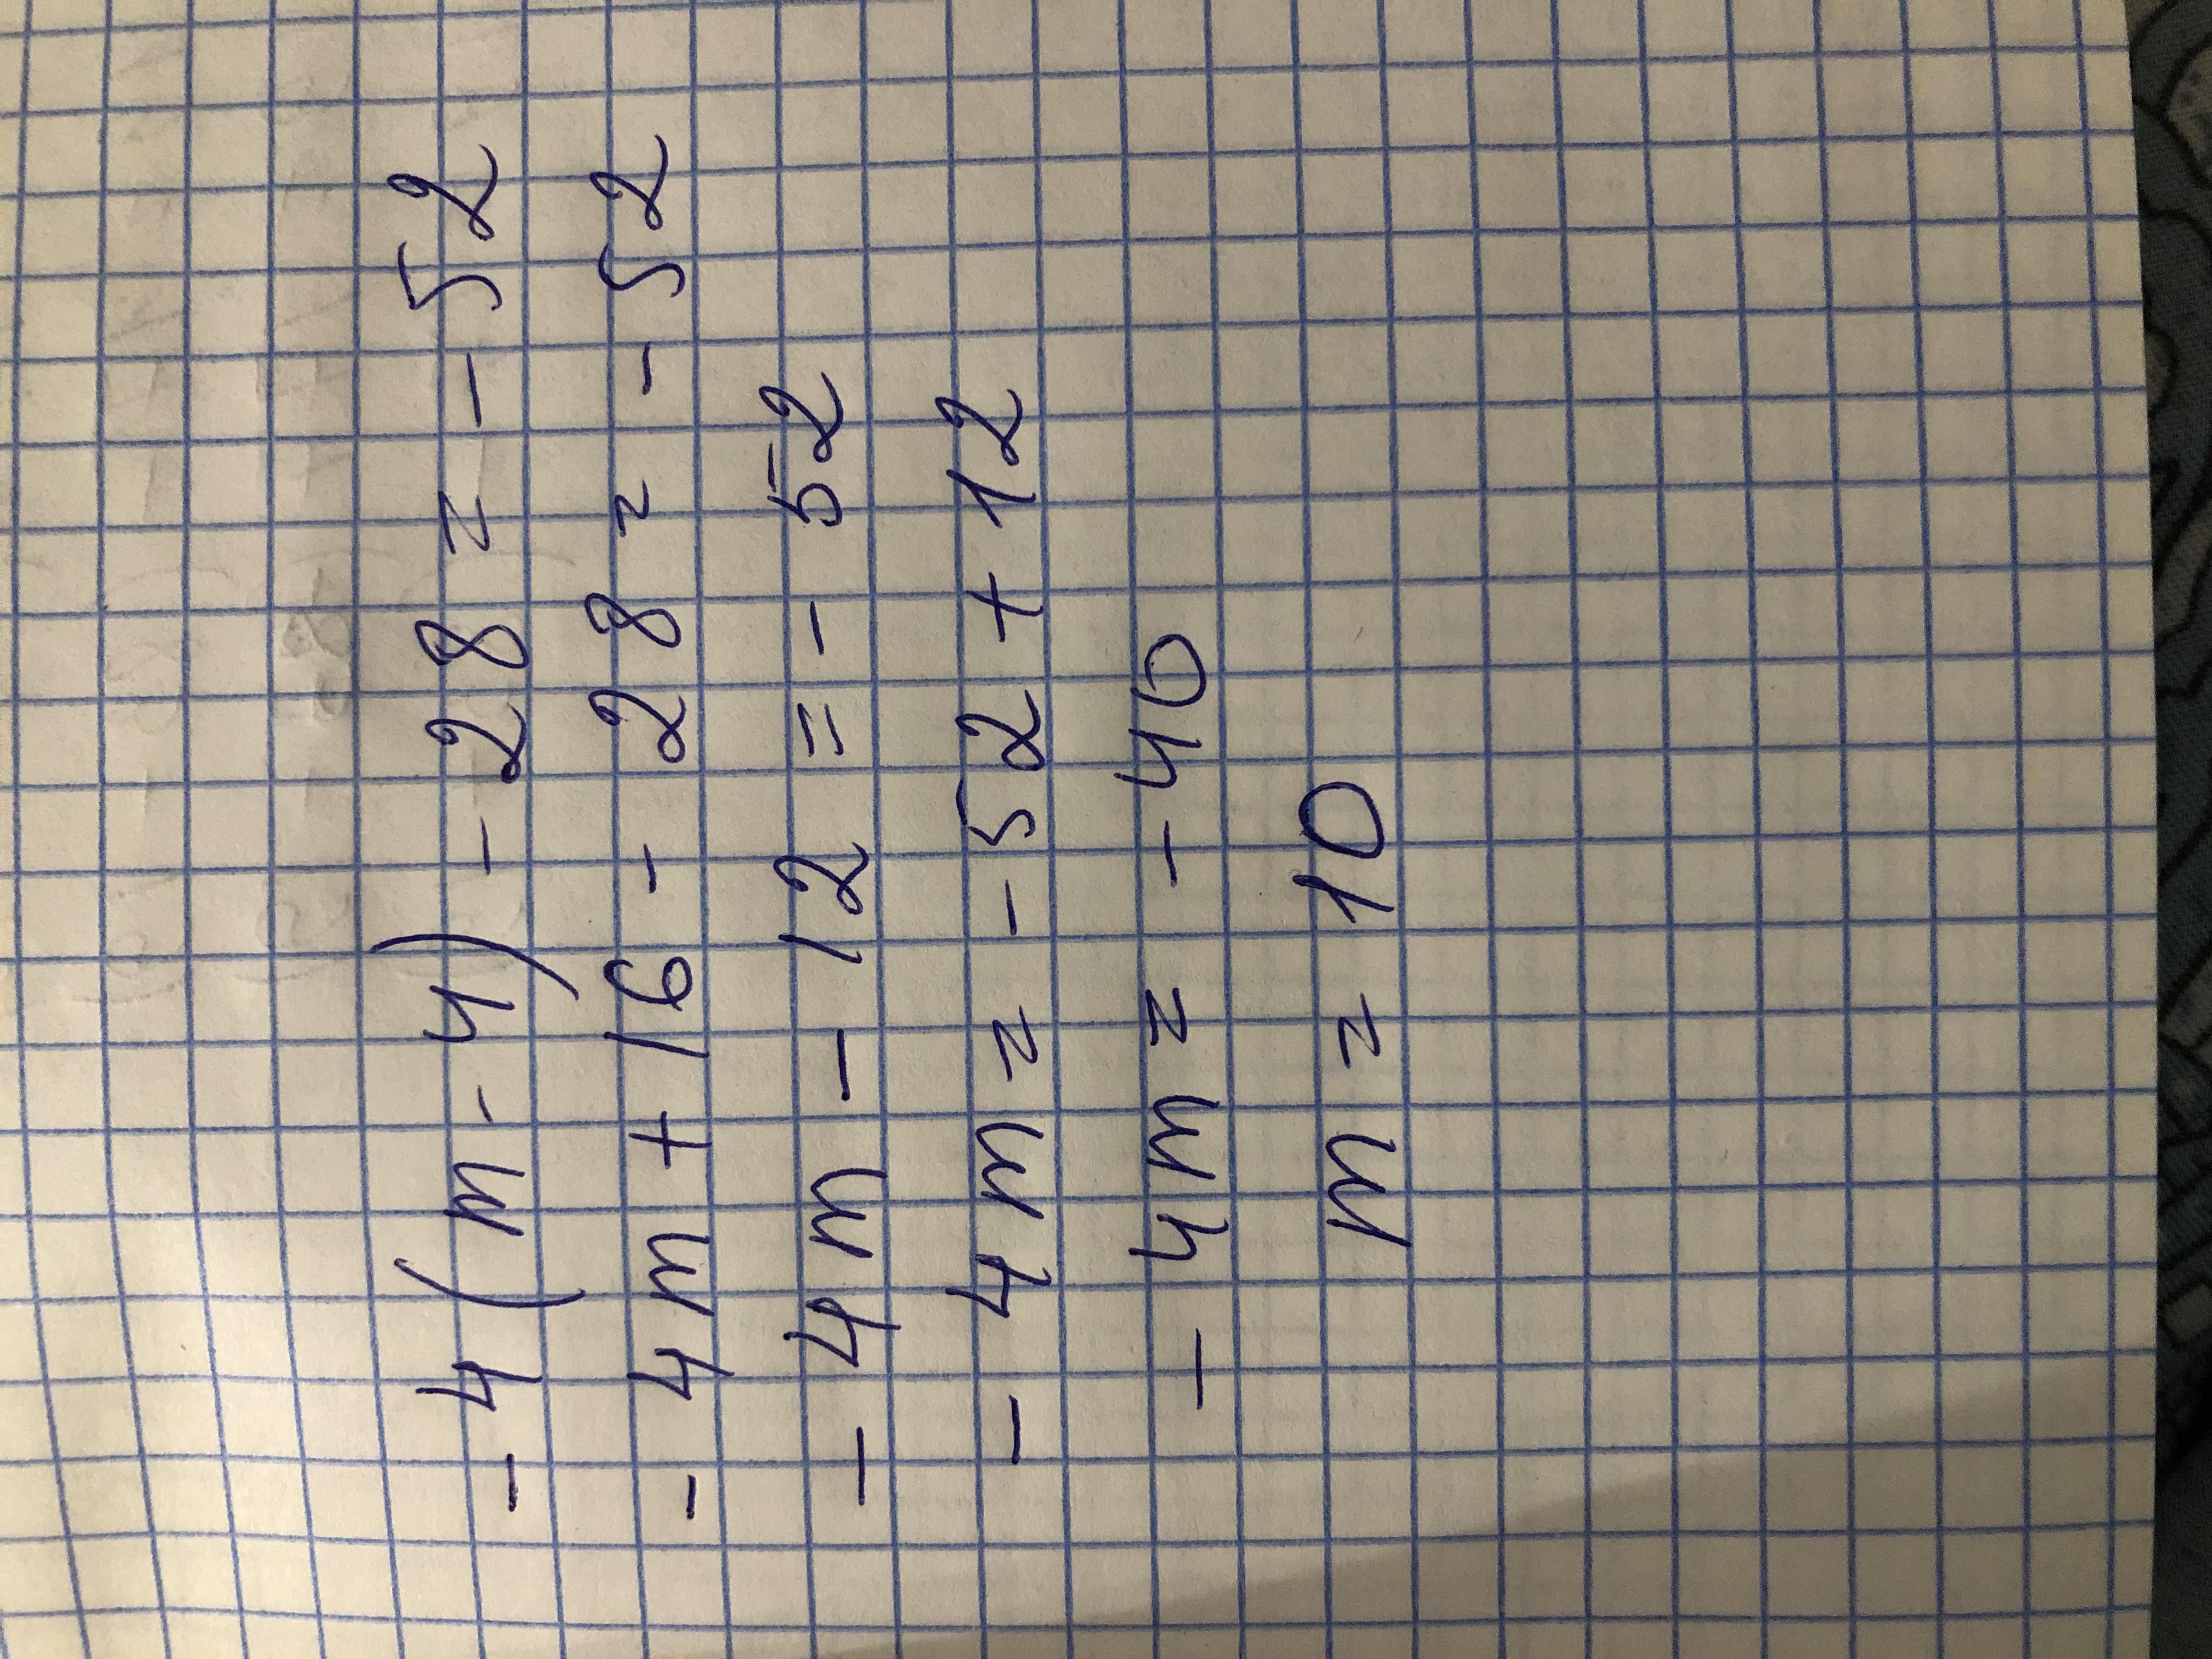 - 4 (m - 4) - 28 = - 52
- 4m + 16 - 28 = - 52
- 4m - 12 = - 52
- 4m = - 52 + 12
- 4m = - 40
m = 10